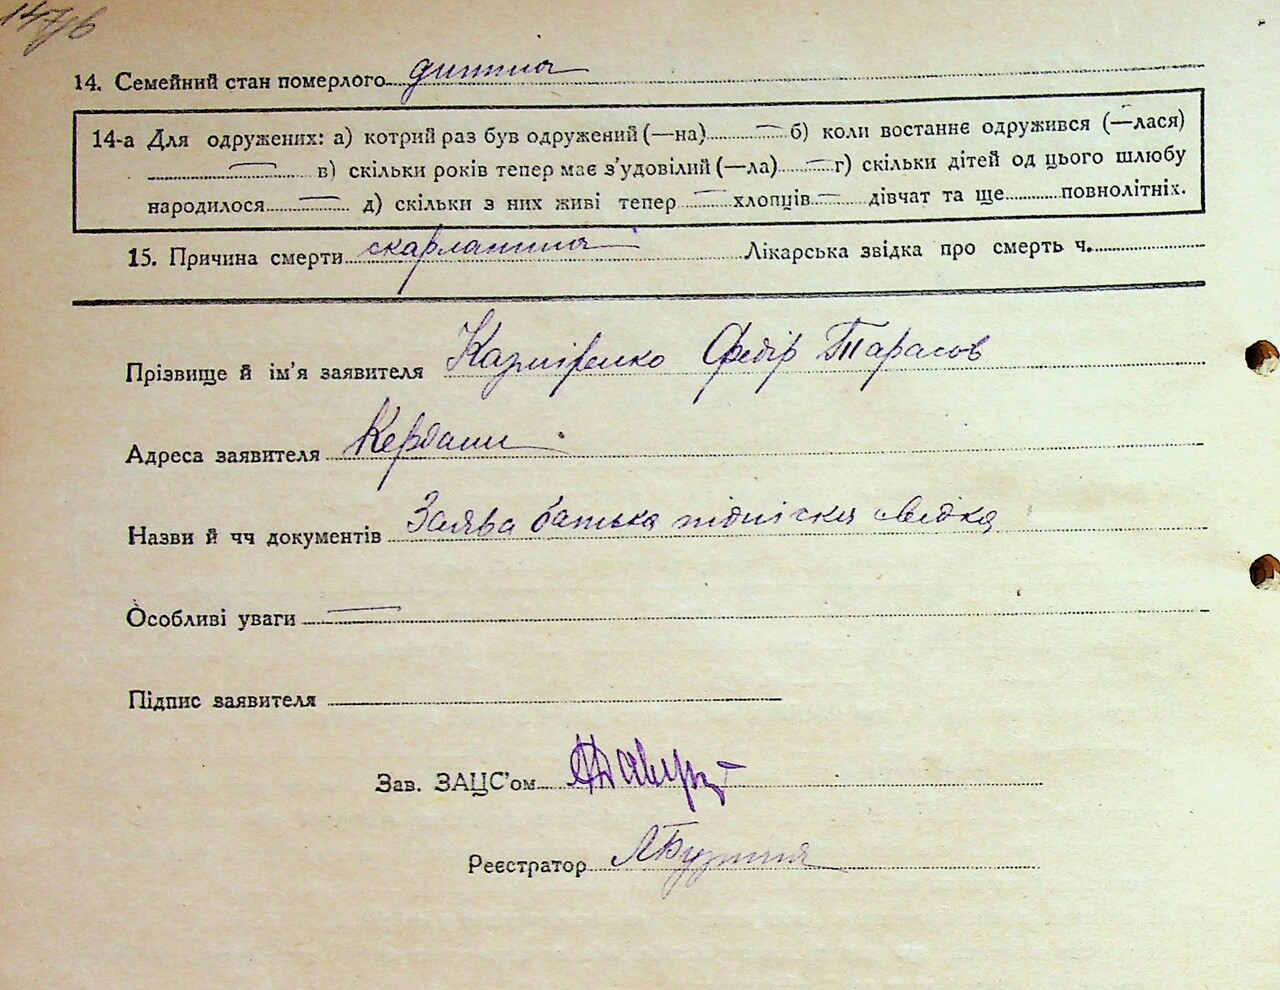 147б
14. Семейний стан померлого дитина
14-а Для одружених: а) котрий раз був одружений (—на) — б) коли востаннє одружився (—лася)
— в) скільки років тепер має з'удовілий (—ла) — г) скільки дітей од цього шлюбу
народилося — д) скільки з них живі тепер — хлопців — дівчат та ще повнолітніх.
15. Причина смерти скарлатина Лікарська звідка про смерть ч.
Прізвище й ім'я заявителя Казміренко Федір Тарасов
Адреса заявителя Кербани
Назви й чч документів Заява батька підписка свідка
Особливі уваги —
Підпис заявителя
Зав. ЗАЦС'ом
Реєстратор